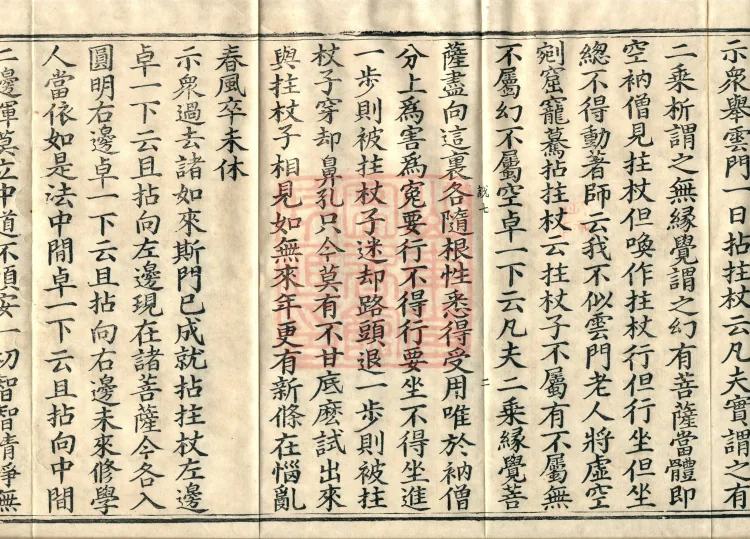 示衆舉雲門一日拈拄杖云凡夫實謂之有
二乘析謂之無縁覺謂之幻有菩薩當體即
空衲僧見拄杖但喚作拄杖行但行坐但坐
總不得動著師云我不似雲門老人將虛空
剜窟窿驀拈拄杖云拄杖子不屬有不屬無
不屬幻不屬空卓一下云凡夫二乘縁覺菩
薩盡向這裏各隨根性悉得受用唯於衲僧
分上爲害爲寃要行不得行要坐不得坐進
一歩則被拄杖子迷却路頭退一歩則被拄
杖子穿却鼻孔只今莫有不甘底麽試出來
與拄杖子相見如無來年更有新條在惱亂
春風卒未休
示衆過去諸如來斯門已成就拈拄杖左邊
卓一下云且拈向左邊現在諸菩薩今各入
圓明右邊卓一下云且拈向右邊未來修學
人當依如是法中間卓一下云且拈向中間
二邊渾莫立中道不須安一切智智清淨無